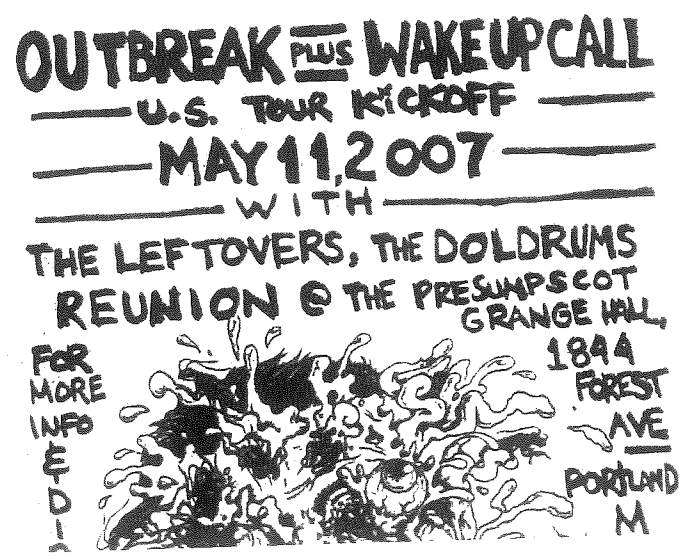 OUTBREAK PLUS WAKE UP CALL
U.S. TOUR KICKOFF
MAY 11, 2007
WITH
THE LEFTOVERS, THE DOLDRUMS
REUNION @ THE PRESUMPSCOT
GRANGE HALL,
1844
FOREST
AVE
PORTLAND
M
FOR
MORE
INFO
&
D
I